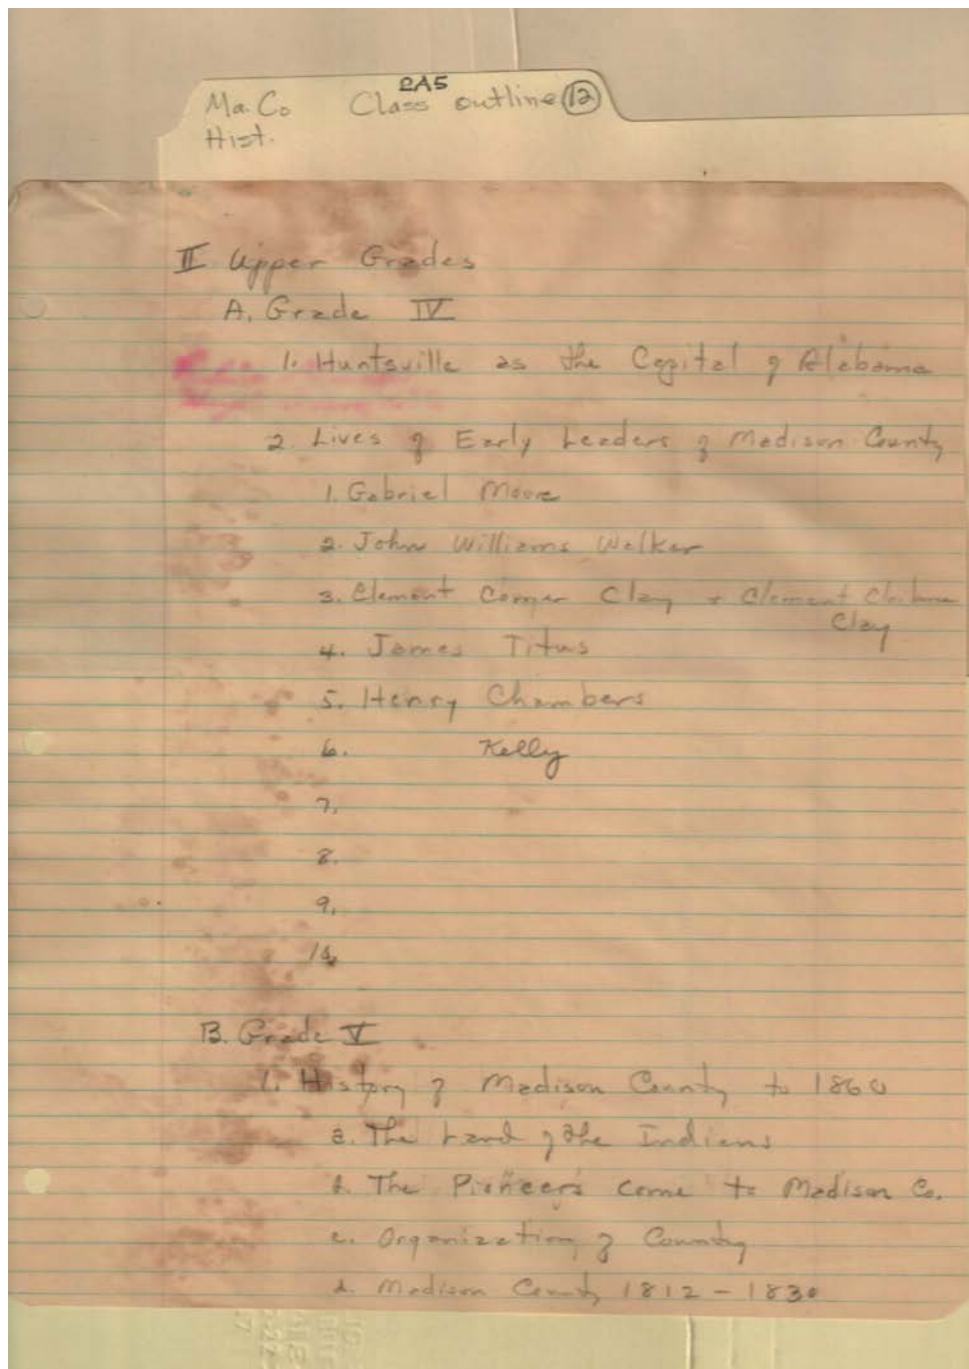 2A5
Ma. Co Class outline 12
Hist.
II Upper Grades
A. Grade IV
1. Huntsville as the Capital of Alabama
2. Lives of Early Leaders of Madison County
1. Gabriel Moore
2. John Williams Walker
3. Clement Comer Clay + Clement Claiborne
Clay
4. James Titus
5. Henry Chambers
6. Kelly
7.
8.
9.
10.
B. Grade V
1. History of Madison County to 1860
a. The Land of the Indians
b. The Pioneers come to Madison Co.
c. Organization of County
d. Madison County 1812 - 1830